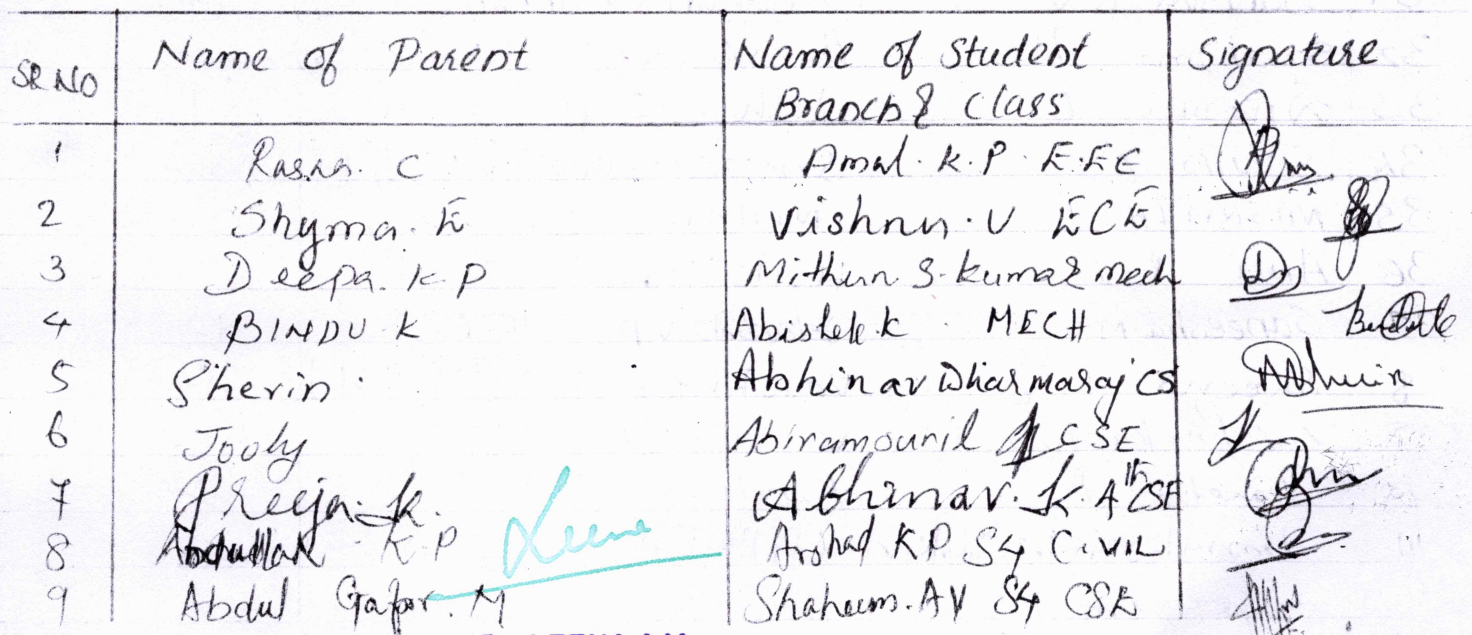 SR NO Name of Parent Name of Student Branch & Class Signature
1 Rasna. C Amal. K. P. E.EE
2 Shyma. E Vishnu. V ECE
3 Deepa. K. P Mithun S. kumar mech
4 BINDU K Abishek. k MECH
5 Sherin Abhinav Dharmaraj CS
6 Jooly CSE
7 Preeja. k. Abhinav. K. CSE
8 Abdullah K P Arshad KP S4 CIVIL
9 Abdul Gafoor. M Shaheem. AV S4 CSE